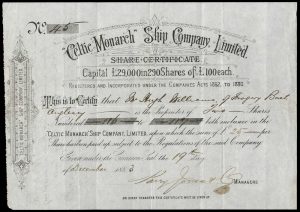 No 45
"Celtic Monarch" Ship Company, Limited.
SHARE CERTIFICATE
Capital £29,000 in 290 Shares of £100 each.
REGISTERED AND INCORPORATED UNDER THE COMPANIES ACTS 1862, TO 1880.
This is to Certify that Mr Hugh Williams of
Anglesey is the Proprietor of Shares
Numbered to both inclusive in the
CELTIC MONARCH SHIP COMPANY, LIMITED, upon which the sum of £ 25 per
Share has been paid up, subject to the Regulations of the said Company.
Given under the Common Seal the 19th day
of December 188
MANAGERS
ON EVERY TRANSFER THIS CERTIFICATE MUST BE GIVEN UP.